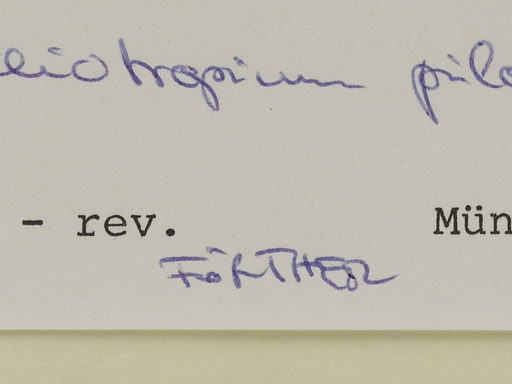 eliotropium pilo
- rev. Mün
FÖRTHER